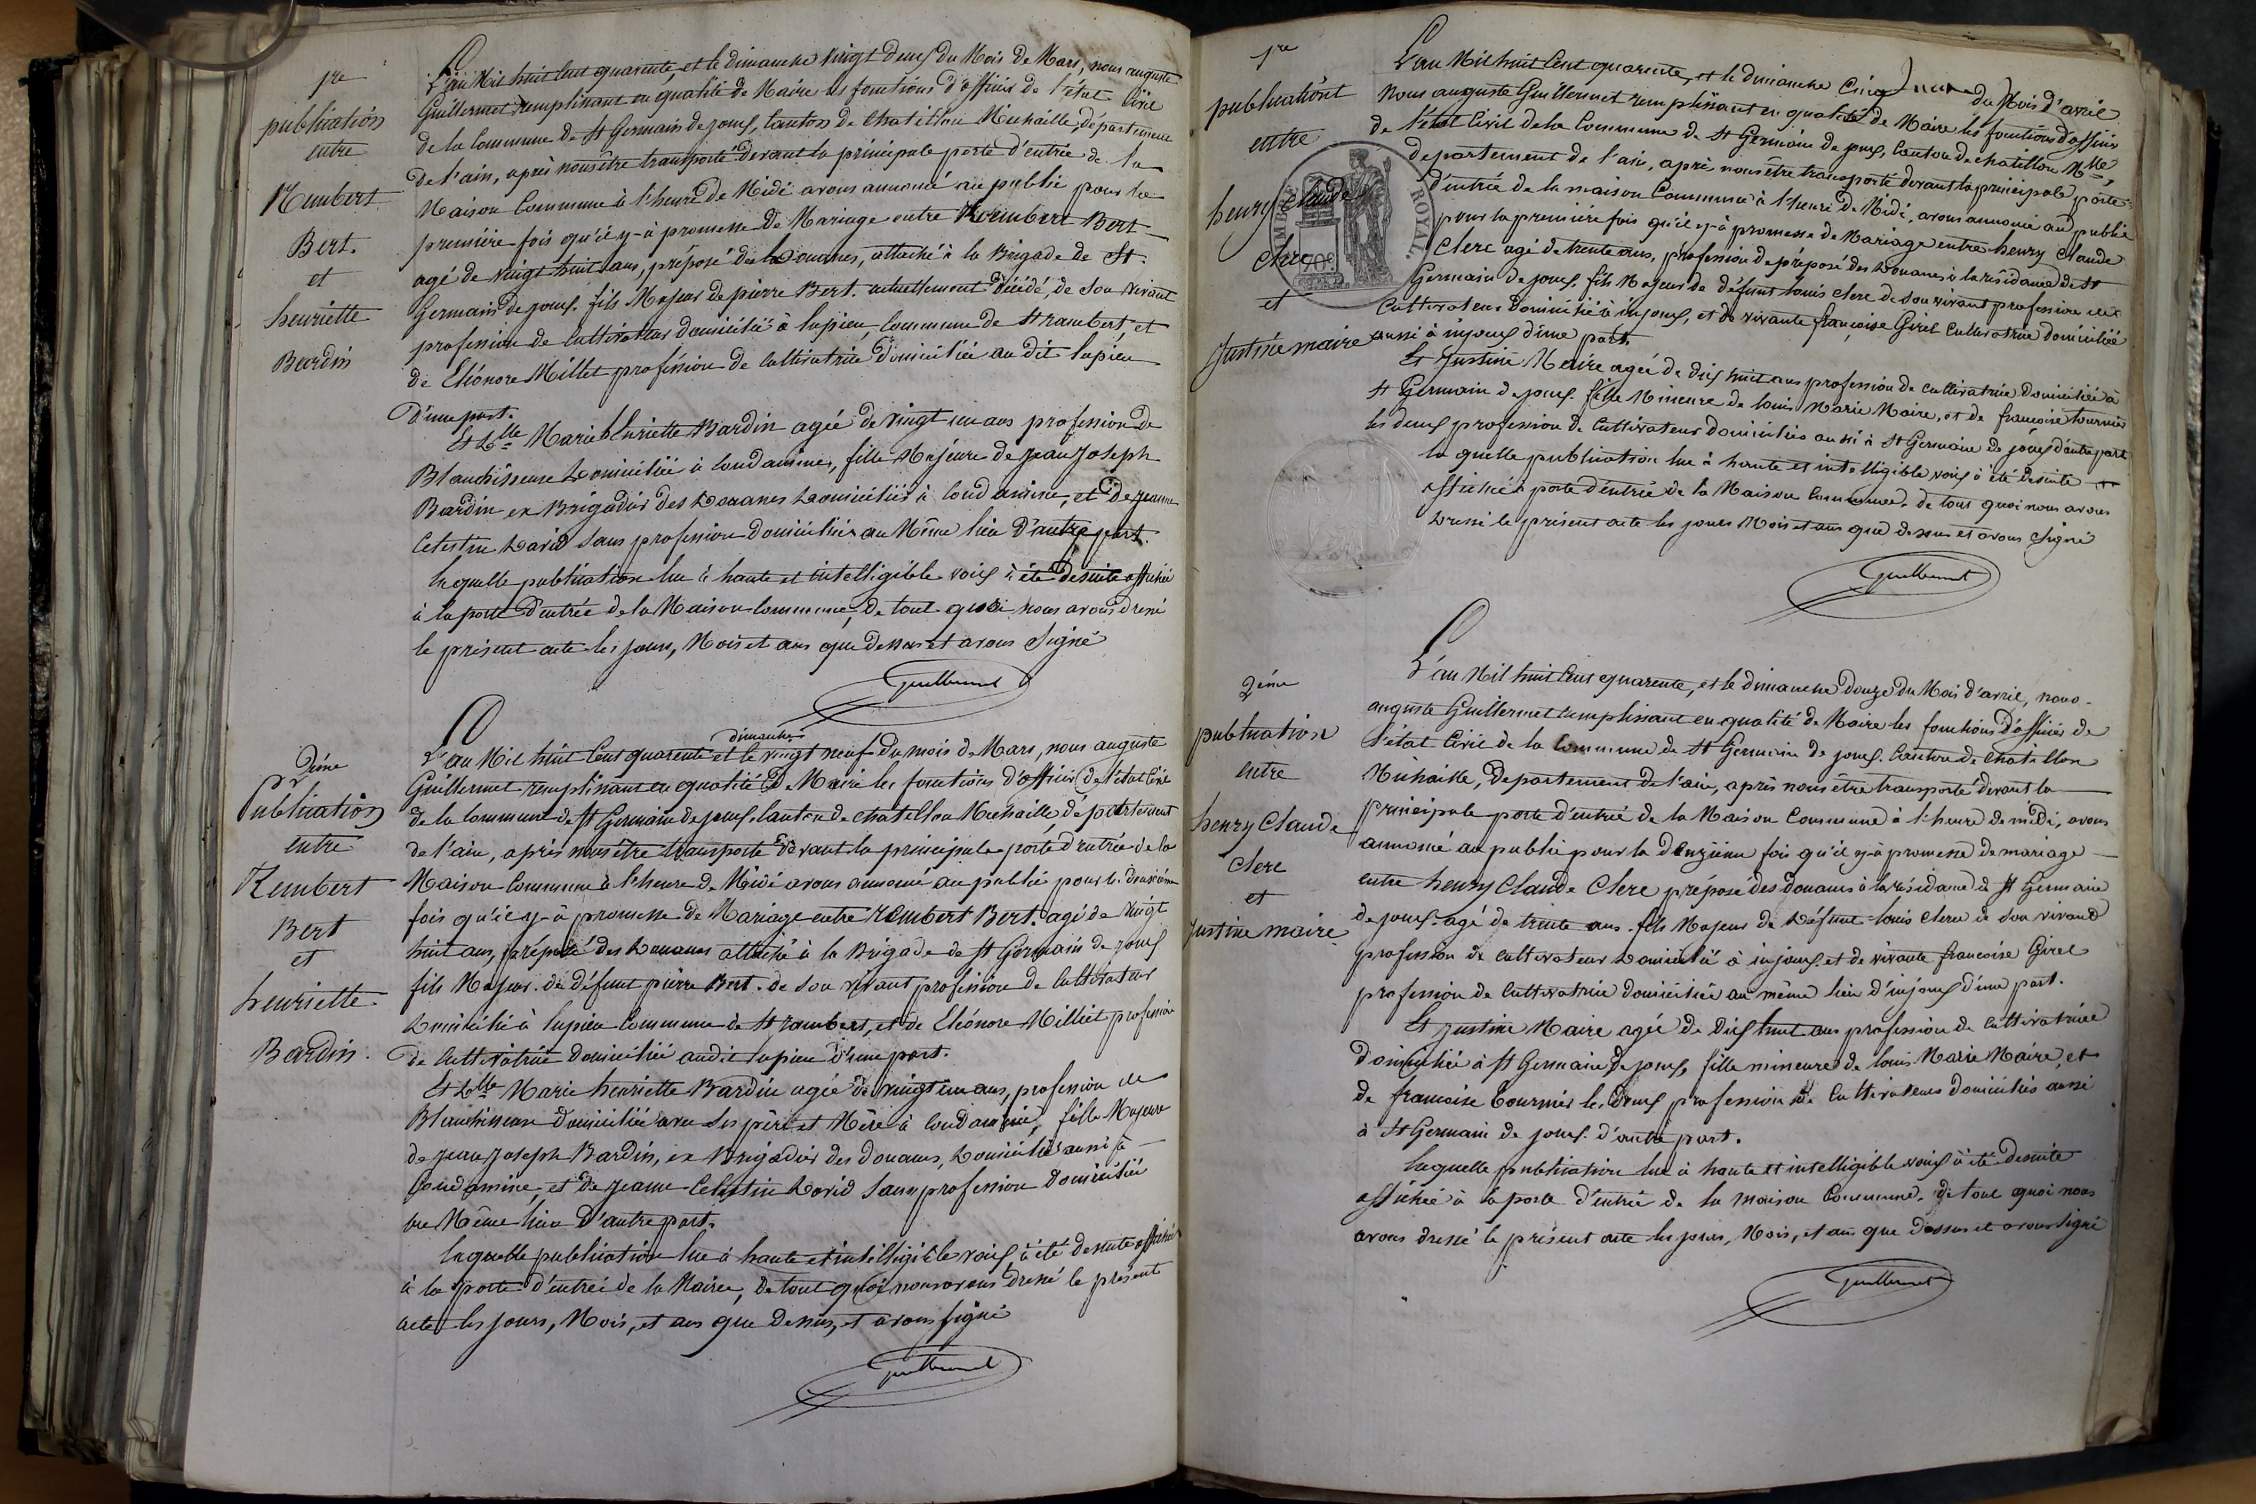 1re
publication
entre
Rembert
Bert.
et
henriette
Bardin
L'an Mil huit Cent quarante, et le dimanche vingt deux du Mois de Mars, nous auguste
Guillermet remplissant en qualité de Maire les fonctions d'officier de l'état Civil
de la Commune de St Germain de joux, Canton de Chatillon Michaille, département
de l'ain, après nous être transporté devant la principale porte d'entrée de la
Maison Commune à l'heure de Midi avons annoncé au public pour la
première fois qu'il y à promesse de Mariage entre Rembert Bert
agé de vingt huit ans, préposé des Douanes, attaché à la Brigade de St.
Germain de joux. fils Majeur de pierre Bert. actuellement décédé, de son vivant
profession de Cultivateur domicilié à lupieu Commune de St rambert, et
de Eléonore Millet profession de Cultivatrice domiciliée au dit lupieu
d'une part.
Et Dlle Marie henriette Bardin agée de vingt un ans profession de
Blanchisseuse Domiciliée à Condamine, fille Majeure de jean joseph
Bardin ex Brigadier des Douanes Domicilié à Condamine, et de jeanne
Celestine David Sans profession Domiciliée au Même lieu d'autre part.
laquelle publication lue à haute et intelligible voix à été desuite affichée
à la porte d'entrée de la Maison Commune, de tout quoi nous avons dressé
le présent acte les jours, Mois et ans que dessus et avons Signé
Guillermet
2éme
Publication
entre
Rembert
Bert
et
henriette
Bardin.
dimanche
L'an Mil huit Cent quarante et le vingt neuf du mois de Mars, nous auguste
Guillermet remplissant en qualité De Maire les fonctions d'officier de l'état Civil
de la Commune de St Germain de joux, Canton de chatillon Michaille, département
de l'ain, après nous être transporté devant la principale porte d'entrée de la
Maison Commune à l'heure de Midi avons annoncé au public pour la deuxième
fois qu'il y à promesse de Mariage entre rembert Bert. agé de vingt
huit ans, préposé des Douanes attaché à la Brigade de St Germain de joux
fils Majeur. de défunt pierre Bert. de son vivant profession de Cultivateur
Domicilié à lupieu Commune de St rambert, et de Eléonore Milliet profession
de Cultivatrice domiciliée audit lupieu d'une part.
Et Dlle Marie henriette Bardin agée de vingt un ans, profession de
Blanchisseuse domiciliée avec ses père et Mère à Condamine, fille Majeure
de jean joseph Bardin, ex Brigadier des douanes, Domicilié aussi à
Condamine, et De jeanne Celestine David Sans profession domiciliée
au Même lieu d'autre part.
laquelle publication lue à haute et intelligible voix, à été desuite affichée
à la porte d'entrée de la Mairie, de tout quoi nous avons dressé le présent
acte les jours, Mois, et ans que Dessus, et avons signé
Guillermet
1re
publication
entre
henry Claude
Clerc
et
Justine maire
TIMBRE ROYAL.
70c
L'an Mil huit Cent quarante, et le dimanche Cinq du Mois d'avril
Nous auguste Guillermet remplissant en qualité de Maire les fonctions d'officier
de l'état Civil de la Commune de St Germain de joux, Canton de chatillon Mlle,
departement de l'ain, après nous être transporté devant la principale porte
d'entrée de la maison Commune à l'heure de Midi, avons annoncé au public
pour la première fois qu'il y à promesse de Mariage entre henry Claude
Clerc agé de trente ans, profession de préposé des Douanes à la résidance de St
Germain de joux. fils Majeur de défunt louis clerc de son vivant profession de
Cultivateur Domicilié à injoux, et de vivante françoise Girel Cultivatrice domiciliée
aussi à injoux d'une part.
Et justine Maire agée de dix huit ans profession de cultivatrice Domiciliée à
St Germain de joux. fille Mineure de louis Marie Maire, et de francoise tournier
les deux profession de Cultivateurs domiciliés aussi à St Germain de joux d'autre part
la quelle publication lue à haute et intelligible voix à été Desuite
affichée à porte d'entrée de la Maison Commune. de tous quoi nous avons
Dressé le présent acte les jours Mois et ans que dessus et avons signé
Guillermet
2éme
publication
entre
henry Claude
Clerc
et
justine maire
L'an Mil huit Cent quarante, et le dimanche douze Du Mois d'avril, nous
auguste Guillermet remplissant en qualité de Maire les fonctions d'officier de
l'état Civil de la Commune de St Germain de joux. Canton de Chatillon
Michaille, departement de l'ain, après nous être transporté devant la
principale porte d'entrée de la Maison Commune à l'heure de midi, avons
annoncé au public pour la deuxième fois qu'il y à promesse de mariage
entre henry Claude Clerc préposé des douanes à la résidance de St Germain
de joux. agé de trente ans. fils Majeur de Défunt louis Clerc de son vivant
profession de cultivateur Domicilié à injoux. et de vivante francoise Girel
profession de Cultivatrice domiciliée au même lieu d'injoux d'une part.
Et justine Maire agée de Dix huit ans profession de Cultivatrice
Domiciliée à St Germain de joux, fille mineure de louis Marie Maire, et
de francoise tournier les deux profession de Cultivateurs domiciliés aussi
à St Germain de joux. d'autre part.
laquelle publication lue à haute et intelligible voix à été Desuite
affichée à la porte d'entrée de la maison Commune. de tout quoi nous
avons dressé le présent acte les jours, Mois, et an que dessus et avons signé
Guillermet